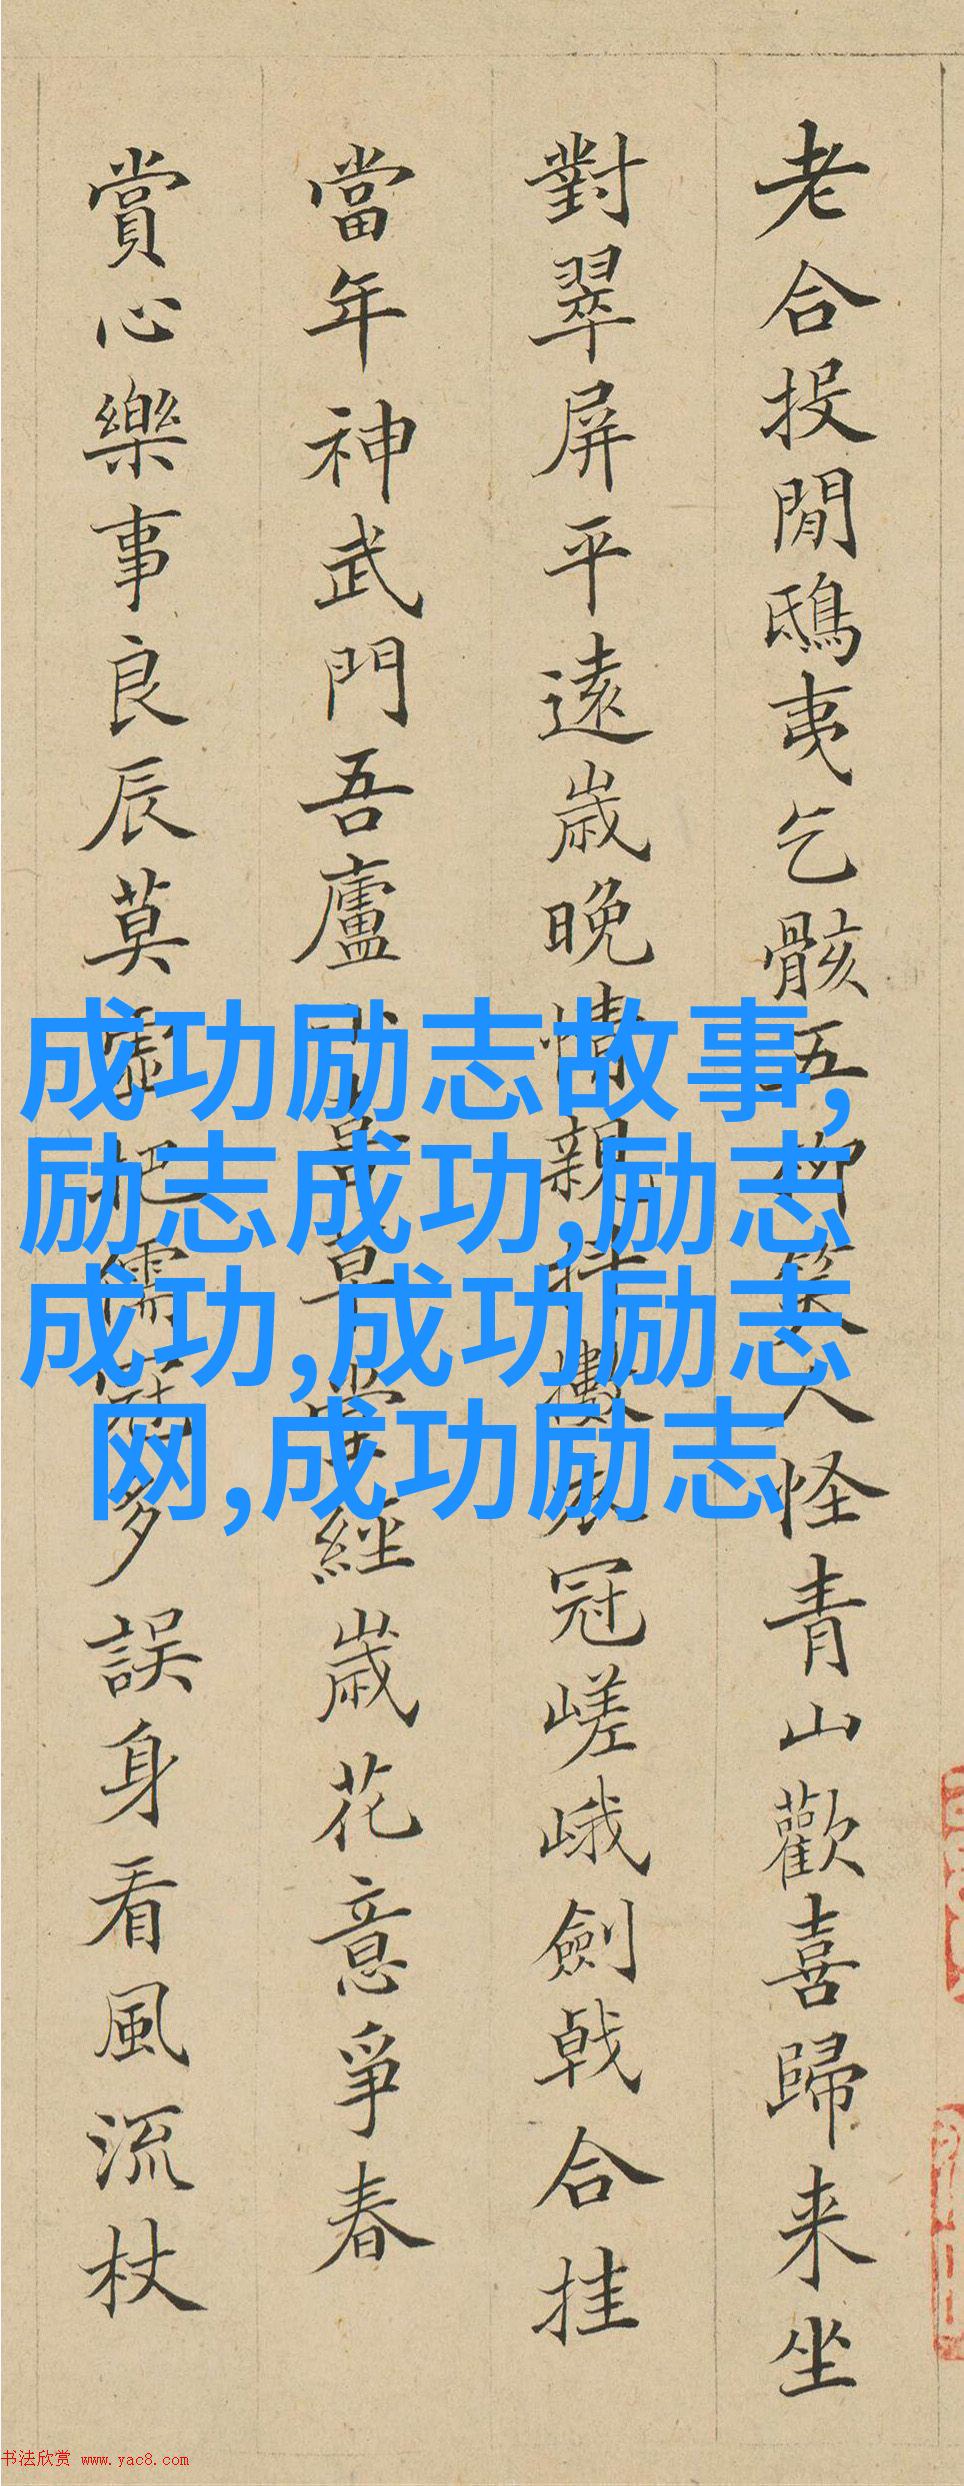 老合投閒鴟夷乞骸五柳笑人怪青山歡喜歸来坐
對翠屏平遠歲晚情親衣冠嵯峨劍戟合挂
當年神武門吾廬堂經歲花意爭春
賞心樂事良辰莫虛把儒冠多誤身看風流杖
成功励志故事,
励志成功,励志
成功,成功励志
网,成功励志
书法欣赏 www.yac8.com